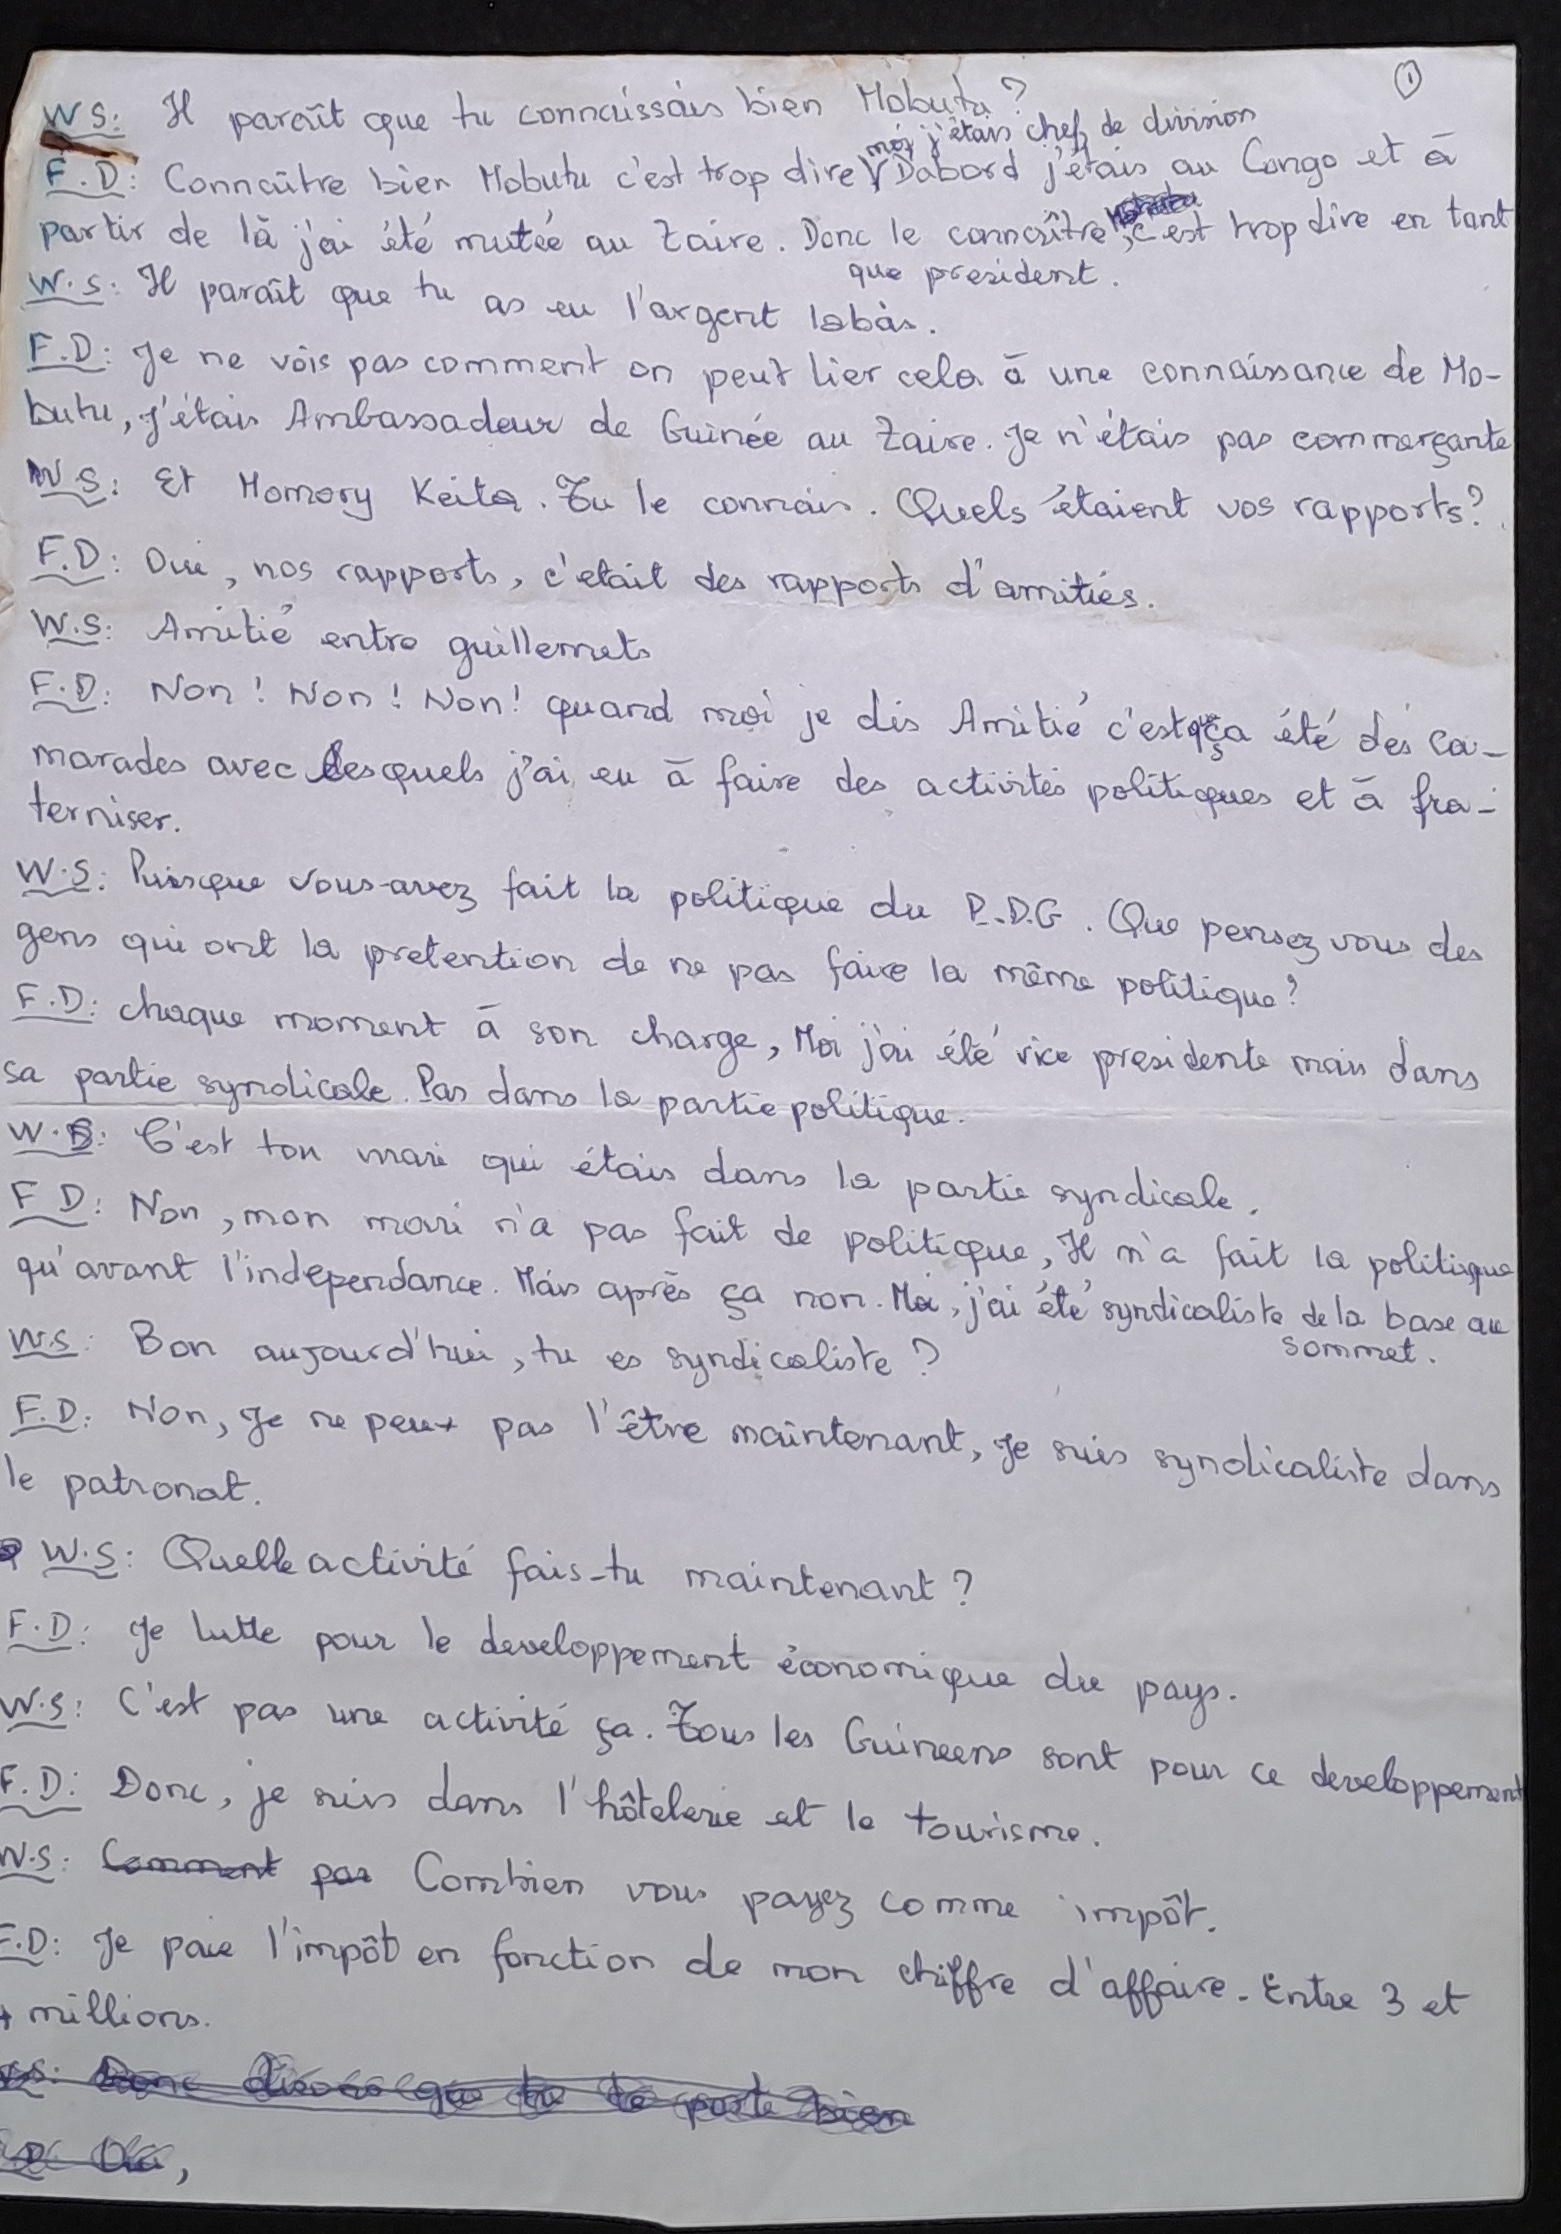 ①
W S: Il paraît que tu connaissais bien Mobutu?
moi j'étais chef de division
F.D: Connaître bien Mobutu c'est trop dire Dabord j'étais au Congo et à
partir de là j'ai été mutée au Zaire. Donc le connaître, c'est trop dire en tant
que president.
W.S: Il paraît que tu as eu l'argent labàs.
F.D: Je ne vois pas comment on peut lier cela à une connaissance de Mo-
butu, j'étais Ambassadeur de Guinée au Zaire. Je n'étais pas commerçante
W S: Et Momory Keita. Tu le connais. Quels étaient vos rapports?
F.D: Oui, nos rapports, c'etait des rapports d'amitiés.
W.S: Amitié entre guillemets
F.D: Non! Non! Non! quand moi je dis Amitié c'est que ça été des ca-
marades avec lesquels j'ai eu à faire des activités politiques et à fra-
terniser.
W.S: Puisque vous-avez fait la politique du P.D.G. Que pensez vous des
gens qui ont la pretention de ne pas faire la même politique?
F.D: chaque moment à son charge, Moi j'ai été vice presidente mais dans
sa partie syndicale. Pas dans la partie politique.
W.S: C'est ton mari qui étais dans la partie syndicale.
F D: Non, mon mari n'a pas fait de politique, Il n'a fait la politique
qu'avant l'independance. Mais après ça non. Moi, j'ai été syndicaliste de la base au
sommet.
W.S: Bon aujourd'hui, tu es syndicaliste?
F.D: Non, Je ne peux pas l'être maintenant, Je suis syndicaliste dans
le patronat.
W.S: Quelle activité fais-tu maintenant?
F.D: Je lutte pour le developpement économique du pays.
W.S: C'est pas une activité ça. Tous les Guineens sont pour ce developpement
F.D: Donc, je suis dans l'hôtelerie et le tourisme.
W.S: Comment pas Combien vous payez comme impôt.
F.D: Je paie l'impôt en fonction de mon chiffre d'affaire. Entre 3 et
4 millions.
que tu te porte bien